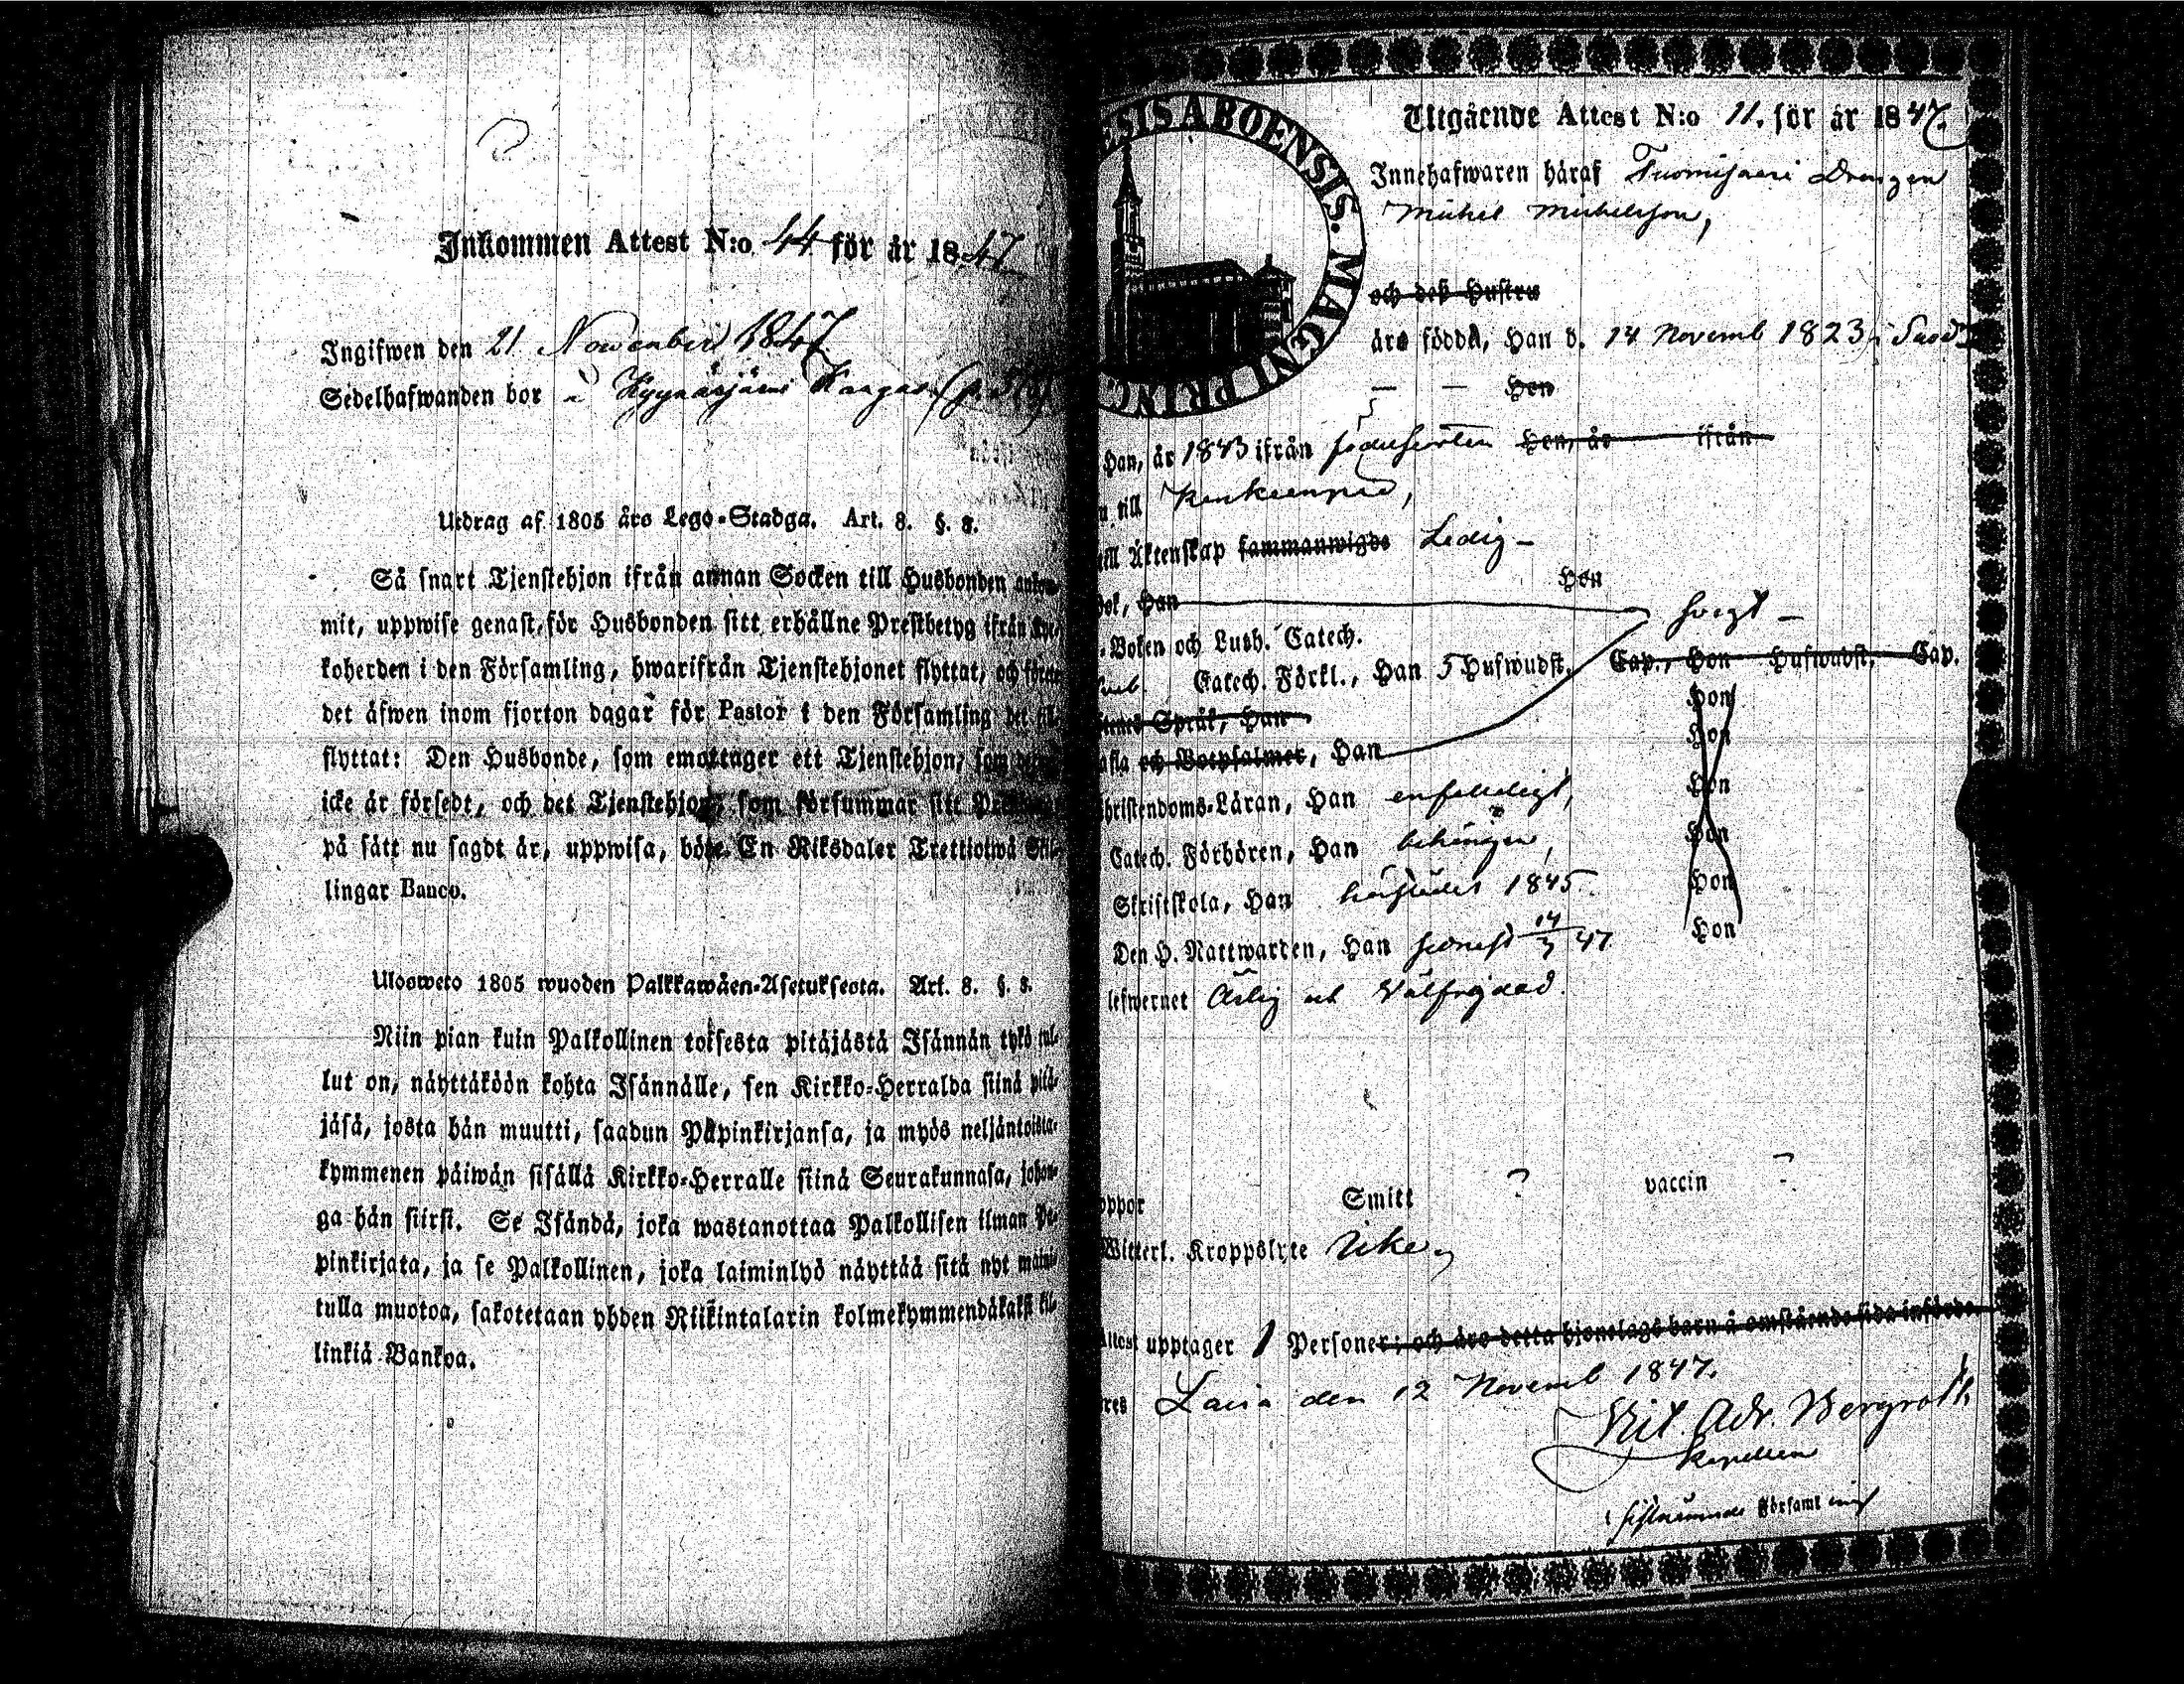 Inkommen Attest N:o 44 för år 1847
Ingifwen den 21 November 1847
Sedelhafwanden bor i Kyynärjärvi Kangas
Utdrag af 1805 års Lego-Stadga. Art. 8. §. 8.
Så snart Tjenstehjon ifrån annan Socken till Husbonden ankom-
mit, uppwise genast för Husbonden sitt erhållne Prestbetyg ifrån Kyr-
koherden i den Församling, hwarifrån Tjenstehjonet flyttat, och förete
det äfwen inom fjorton dagar för Pastor i den Församling det till-
flyttat: Den Husbonde, som emottager ett Tjenstehjon, som
icke är försedt, och det Tjenstehjon, som försummar sitt
på sätt nu sagdt är, uppwisa, böte En Riksdaler Trettiotwå Skil-
lingar Banco.
Ulosweto 1805 wuoden Palkkawäen-Asetuksesta. Art. 8. §. 8.
Niin pian kuin Palkollinen toisesta pitäjästä Isännän tykö tul-
lut on, näyttäköön kohta Isännälle, sen Kirkko-Herralda siinä pitä-
jäsä, josta hän muutti, saadun Päpinkirjansa, ja myös neljäntoista-
kymmenen päiwän sisällä Kirkko-Herralle siinä Seurakunnasa, johon-
ga hän siirsi. Se Isändä, joka wastanottaa Palkollisen ilman Pa-
pinkirjata, ja se Palkollinen, joka laiminlyö näyttää sitä nyt maini-
tulla muotoa, sakotetaan yhden Riikintalarin kolmekymmendäkaksi kil-
linkiä Bankoa.
ESIS ABOENSIS. MAGNI PRINC
Utgående Attest N:o 11. för år 1847.
Innehafwaren häraf Tuomisaari Drängen
Michel Michelsson,
och deß Hustru
äro födda, Han d. 14 Novemb 1823, i
Hon
Han, år 1843 ifrån födelseorten Hon, år ifrån
till Kankaanpää,
till Äktenskap sammanwigde Ledig –
Hon
bok, Han
Boken och Luth. Catech. svagt –
Catech. Förkl., Han 5 Hufwudst. Cap., Hon Hufwudst. Cap.
Språk, Han Hon
och Botpsalmer, Han Hon
hristendoms-Läran, Han enfaldigt, Hon
Catech. Förhören, Han behörigen, Hon
Skriftskola, Han härstädes 1845. Hon
Den H. Nattwarden, Han senast 14/7 47 Hon
lefwernet Ärlig och Välfrejdad.
oppor Smitt ? vaccin ?
Witterl. Kroppslyte Icke,
Attest upptager 1 Personer; och äro detta hjonelags barn å omstående sida införde.
res Lavia den 12 Novemb 1847.
Vit. Adr. Bergroth
Kapellan
i sistnämnde Församl